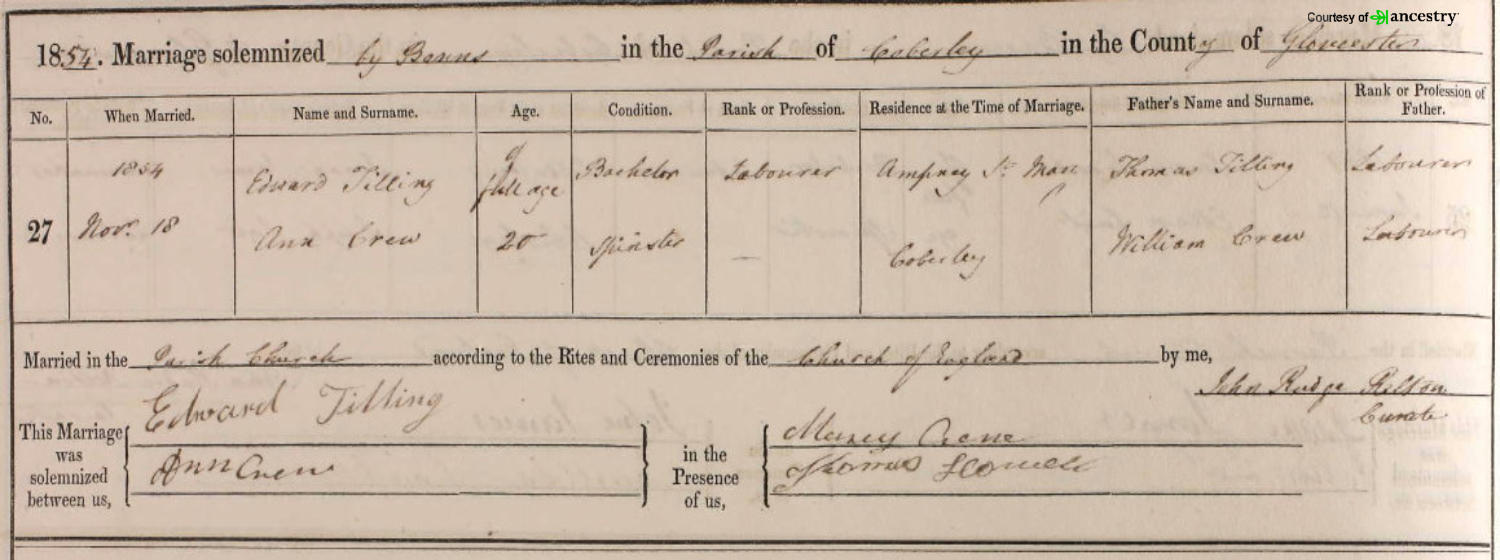 Courtesy of ancestry
1854. Marriage solemnized by Banns in the Parish of Coberley in the County of Gloucester
No. When Married. Name and Surname. Age. Condition. Rank or Profession. Residence at the Time of Marriage. Father's Name and Surname. Rank or Profession of Father.
1854 Edward Tilling of full age Bachelor Labourer Ampney St. Mary Thomas Tilling Labourer
27 Novr. 18 Ann Crew 20 Spinster — Coberley William Crew Labourer
Married in the Parish Church according to the Rites and Ceremonies of the Church of England by me,
John Rudge
Curate
This Marriage was solemnized between us,
Edward Tilling
Ann Crew
in the Presence of us,
Thomas